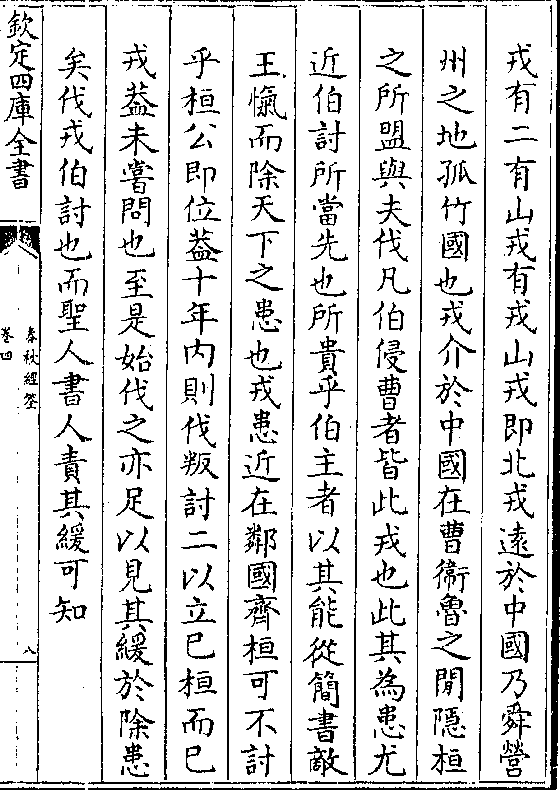 戎有二有山戎有戎山戎即北戎逺於中國乃舜營
州之地孤竹國也戎介於中國在曹衞魯之間隱桓
之所盟與夫伐凡伯侵曹者皆此戎也此其為患尤
近伯討所當先也所貴乎伯主者以其能從簡書敵
王愾而除天下之患也戎患近在鄰國齊桓可不討
乎桓公即位葢十年内則伐叛討二以立已桓而已
戎葢未嘗問也至是始伐之亦足以見其緩於除患
矣伐戎伯討也而聖人書人責其緩可知
欽定四庫全書
春秋經筌
卷四
八